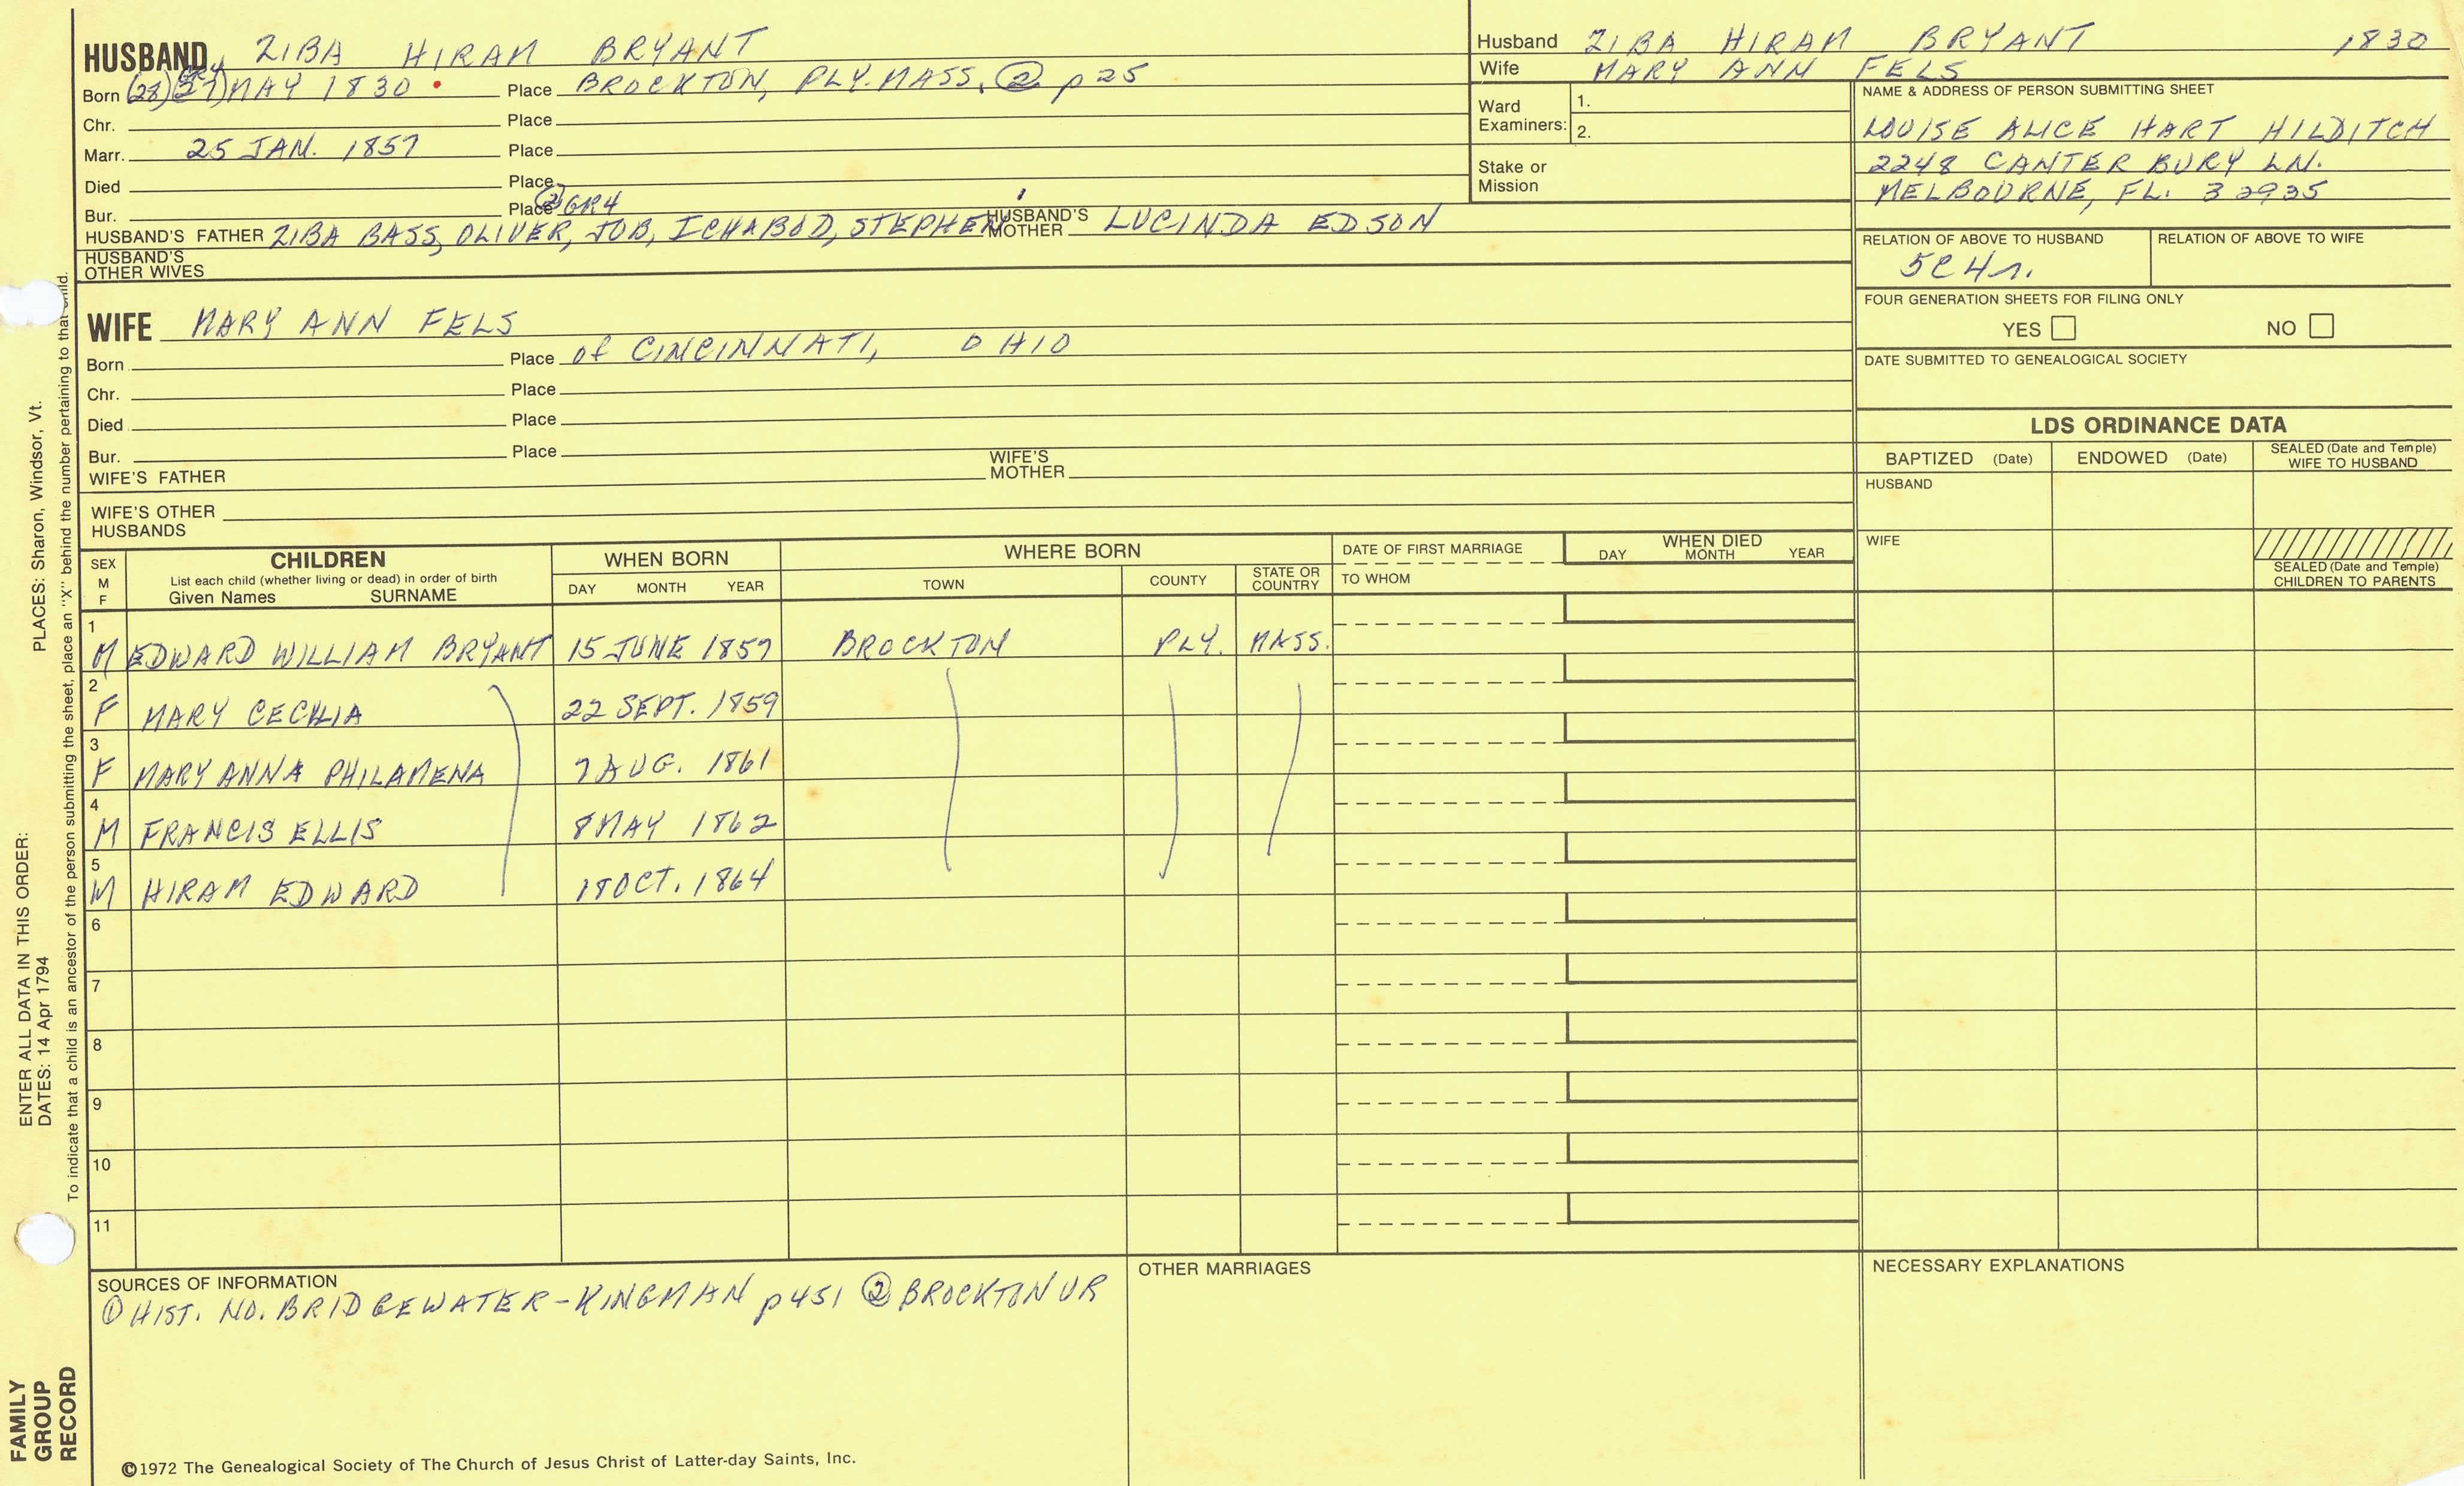 HUSBAND ZIBA HIRAM BRYANT
GR4
Born (28) (27) MAY 1830 Place BROCKTON, PLY. MASS. ② p 25
Chr. Place
Marr. 25 JAN. 1857 Place
Died Place
② GR4
Bur. Place
HUSBAND'S FATHER ZIBA BASS, OLIVER, JOB, ICHABOD, STEPHEN HUSBAND'S MOTHER LUCINDA EDSON
HUSBAND'S OTHER WIVES
WIFE MARY ANN FELS
Born Place of CINCINNATI, OHIO
Chr. Place
Died Place
Bur. Place
WIFE'S FATHER WIFE'S MOTHER
WIFE'S OTHER HUSBANDS
Husband ZIBA HIRAM BRYANT 1830
Wife MARY ANN FELS
Ward Examiners: 1.
2.
Stake or Mission
NAME & ADDRESS OF PERSON SUBMITTING SHEET
LOUISE ALICE HART HILDITCH
2248 CANTERBURY LN.
MELBOURNE, FL. 32935
RELATION OF ABOVE TO HUSBAND RELATION OF ABOVE TO WIFE
5C4r.
FOUR GENERATION SHEETS FOR FILING ONLY
YES NO
DATE SUBMITTED TO GENEALOGICAL SOCIETY
LDS ORDINANCE DATA
BAPTIZED (Date) ENDOWED (Date) SEALED (Date and Temple) WIFE TO HUSBAND
HUSBAND
WIFE
SEALED (Date and Temple) CHILDREN TO PARENTS
SEX M F CHILDREN WHEN BORN WHERE BORN DATE OF FIRST MARRIAGE WHEN DIED
List each child (whether living or dead) in order of birth
Given Names SURNAME DAY MONTH YEAR TOWN COUNTY STATE OR COUNTRY TO WHOM DAY MONTH YEAR
1 M EDWARD WILLIAM BRYANT 15 JUNE 1857 BROCKTON PLY. MASS.
2 F MARY CECILIA 22 SEPT. 1859
3 F MARY ANNA PHILAMENA 7 AUG. 1861
4 M FRANCIS ELLIS 8 MAY 1862
5 M HIRAM EDWARD 18 OCT. 1864
6
7
8
9
10
11
SOURCES OF INFORMATION
① HIST. NO. BRIDGEWATER-KINGMAN p 451 ② BROCKTON VR
OTHER MARRIAGES
NECESSARY EXPLANATIONS
©1972 The Genealogical Society of The Church of Jesus Christ of Latter-day Saints, Inc.
ENTER ALL DATA IN THIS ORDER:
DATES: 14 Apr 1794 PLACES: Sharon, Windsor, Vt.
To indicate that a child is an ancestor of the person submitting the sheet, place an "X" behind the number pertaining to that child.
FAMILY
GROUP
RECORD